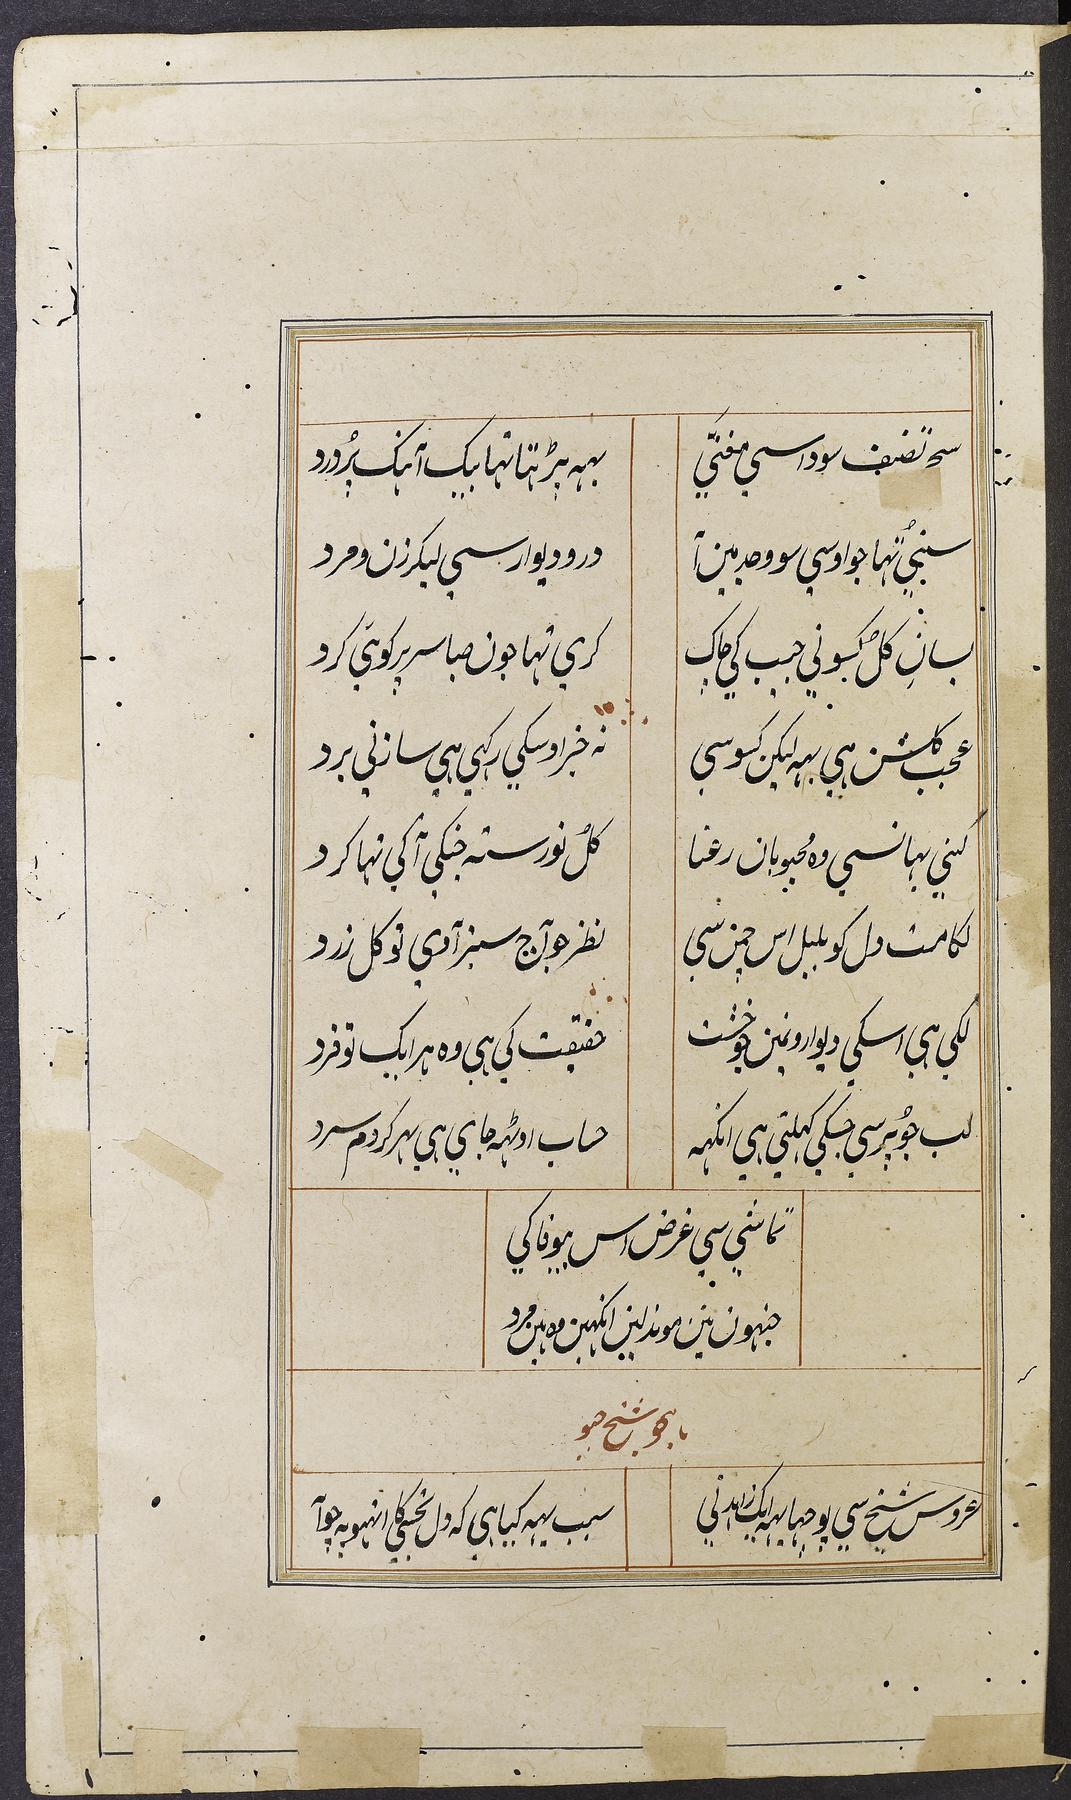 سحر تصنیف سودا سی مغنّی
یہہ پڑہتا تہا بیک آہنک پُردرد
سنی تہا جو اوسی سو وجد مین آ
در و دیوار سی لیکر زن و مرد
بسانِ کل کسو نی جیب کی چاک
کری تہا جون صبا سر پر کوئی کرد
عجب کلشن ہی یہہ لیکن کسو سی
نہ خبر اوسکی رکہی ہی سازنی برد
کئی یہانسی وہ محبوبان رعنا
کل نورستہ جنکی آکی تہا کرد
لکا مت دل کو بلبل اس چمن سی
نظر جو آج سبز آوی تو کل زرد
لکی ہی اسکی دیوارونمین جو خشت
حقیقت کی ہی وہ ہر ایک تو فرد
لب جو پر سی جسکی کہلتی ہی انکہہ
حباب اوٹہہ جای ہی بہر کر دم سرد
تماشی سی غرض اس بیوفا کی
جنہون نین موند لین انکہین وہ ہین مرد
ہجو شیخ جیو
عروس شیخ سی پوچہا یہہ ایک زاہد نی
سبب یہہ کیا ہی کہ دل کا انہو پہ آ